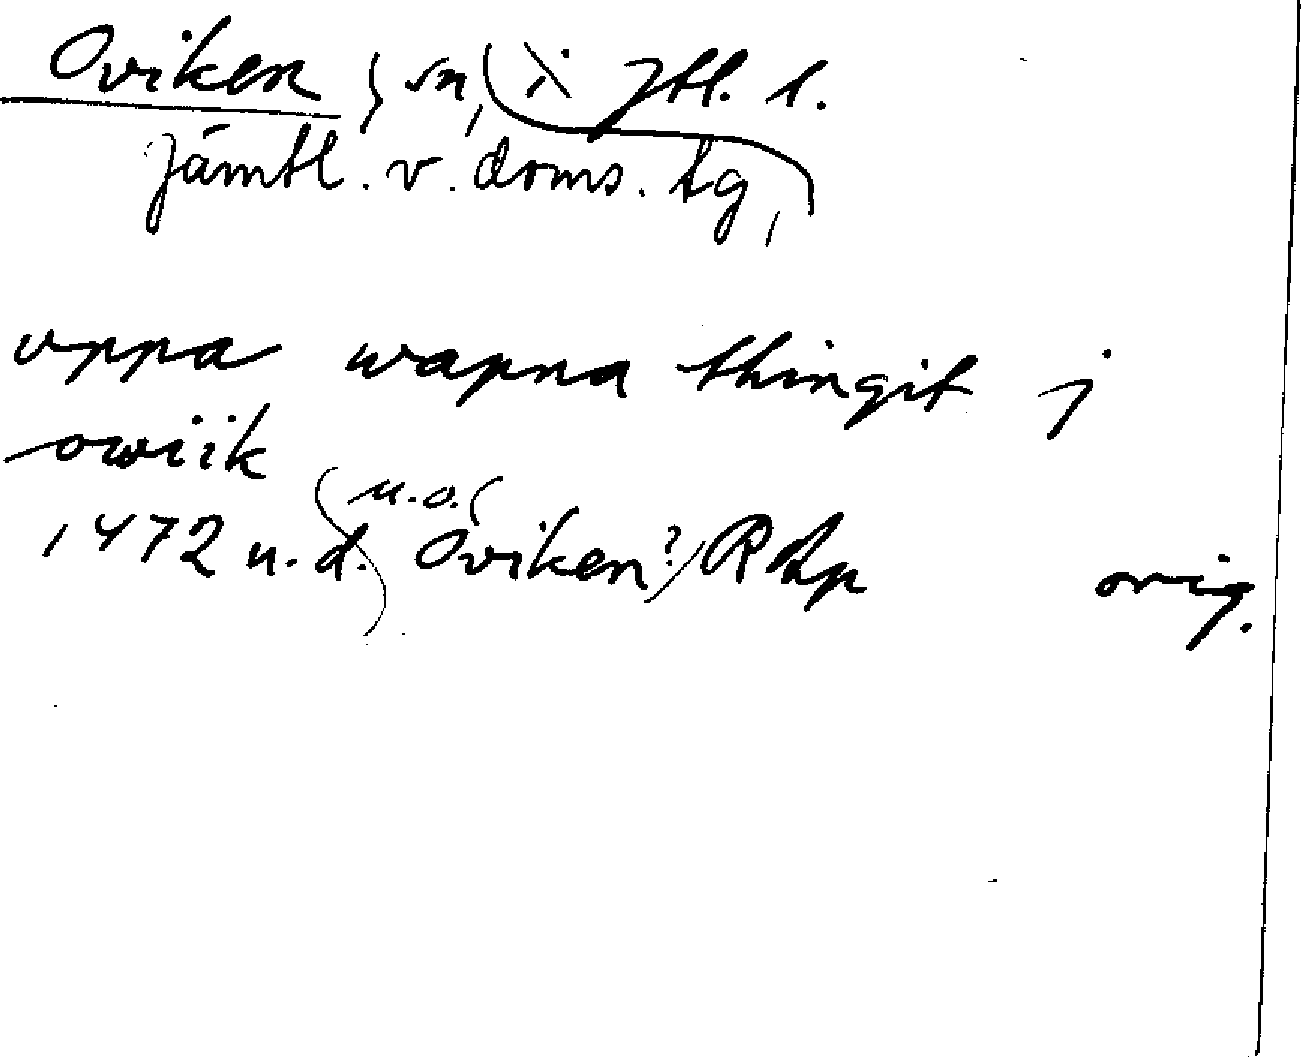 Oviken sn, i Jtl. l.
Jämtl. v. doms. tg,
vppa wapna thingit j
owiik
u.o.
1472 u.d. Oviken? RAp orig.